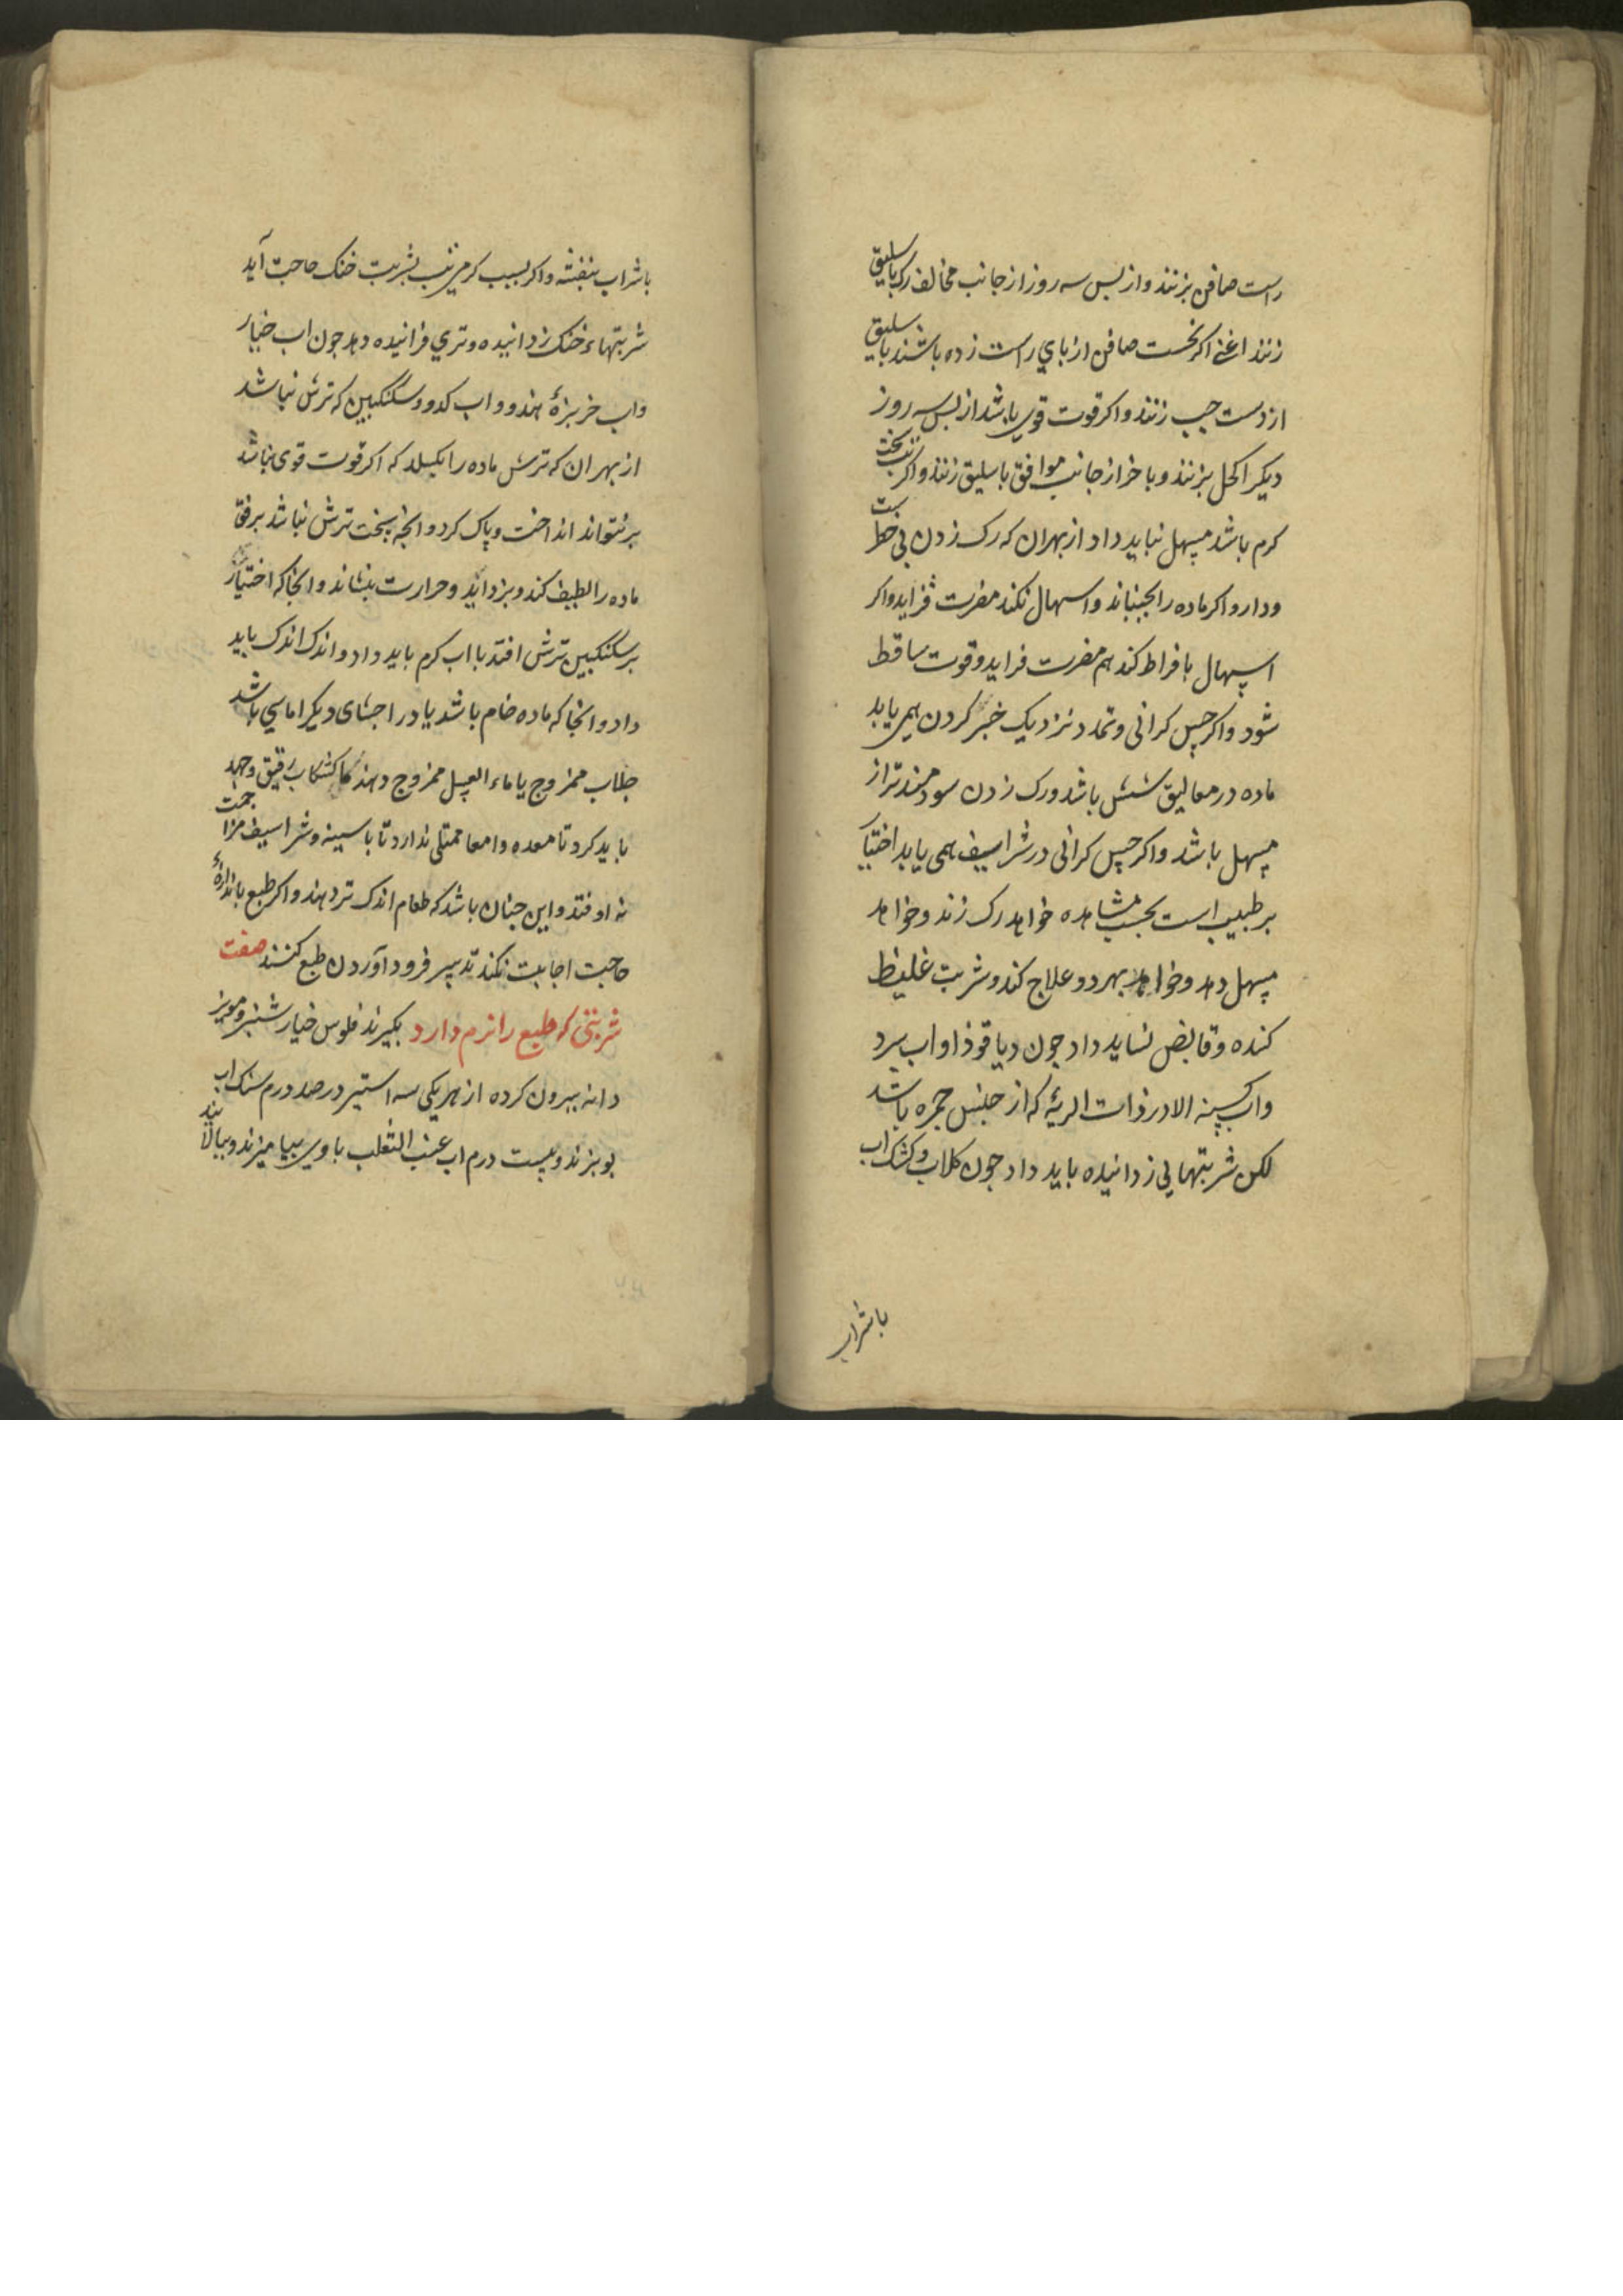 راست صافن بزنند و از بس سه روز از جانب مخالف رک باسلیق
زنند اعنی اکر نخست صافن از بای راست زده باشند باسلیق
از دست جب زنند و اکر قوت قوی باشد از بس سه روز
دیکر اکحل بزنند و باخر از جانب موافق باسلیق زنند و اکر تب سخت
کرم باشد مسهل نباید داد از بهر ان که رک زدن بی خطر تست
و دارو اکر ماده را بجنباند و اسهال نکند مضرت فزاید و اکر
اسهال بافراط کند هم مضرت فزاید و قوت ساقط
شود و اکر حس کرانی و تمدد نزدیک خبر کردن همی یابد
ماده در معالیق شش باشد و رک زدن سودمندتر از
مسهل باشد و اکر حس کرانی در شراسیف همی یابد اختیار
بر طبیب است بحسب مشاهده خواهد رک زند و خواهد
مسهل دهد و خواهد بهر دو علاج کند و شربت غلیظ
کننده و قابض نشاید داد جون دیاقوذا و اب سرد
و اب کسینه الا در ذات الریه که از جنس جمره باشد
لکن شربتهایی زدانیده باید داد جون کلاب و کشک اب
باشراب
باشراب بنفشه و اکر بسبب کرمی تب بشربت خنک حاجت آید
شربتهاء خنک زدانیده و تری فزانیده دهد جون اب خیار
و اب خربزهٔ هندو و اب کدو و سکنکبین که ترش نباشد
از بهر ان که ترش ماده را بکسلد که اکر قوت قوی نباشد
برنتواند انداخت و پاک کرد و انچه سخت ترش نباشد برفق
ماده را لطیف کند و بزداید و حرارت بنشاند و انجا که اختیار
بر سکنکبین ترش افتد با اب کرم باید داد و اندک اندک باید
داد و انجا که ماده خام باشد یا در احشای دیکر اماسی باشد
جلاب ممزوج یا ماء العسل ممزوج دهند یا کشکاب رقیق و جهد
باید کرد تا معده و امعا ممتلی ندارد تا با سینه و شراسیف مزاحمت
نه اوفتد و این جنان باشد که طعام اندک تر دهند و اکر طبع باندازهٔ
حاجت اجابت نکند تدبیر فرود آوردن طبع کنند صفت
شربتی که طبع را نرم دارد بکیرند فلوس خیار شنبر و مویز
دانه بیرون کرده از هر یکی سه استیر در صد درم سنک اب
بوبزند و بیست درم اب عنب الثعلب با وی بیامیزند و ببالایند